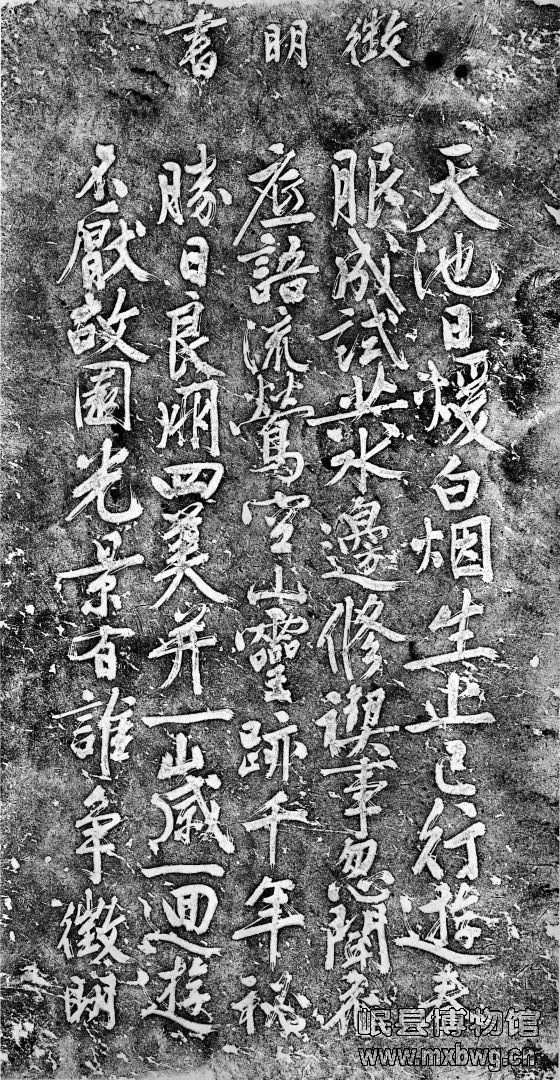 徵明書
天池日煖白烟生上巳行遊春
服成試共水邊修禊事忽聞花
底語流鶯空山靈跡千年秘
勝日良朋四美并一歲一迴遊
不厭故園光景有誰爭徵明
岷县博物馆
www.mxbwg.cn